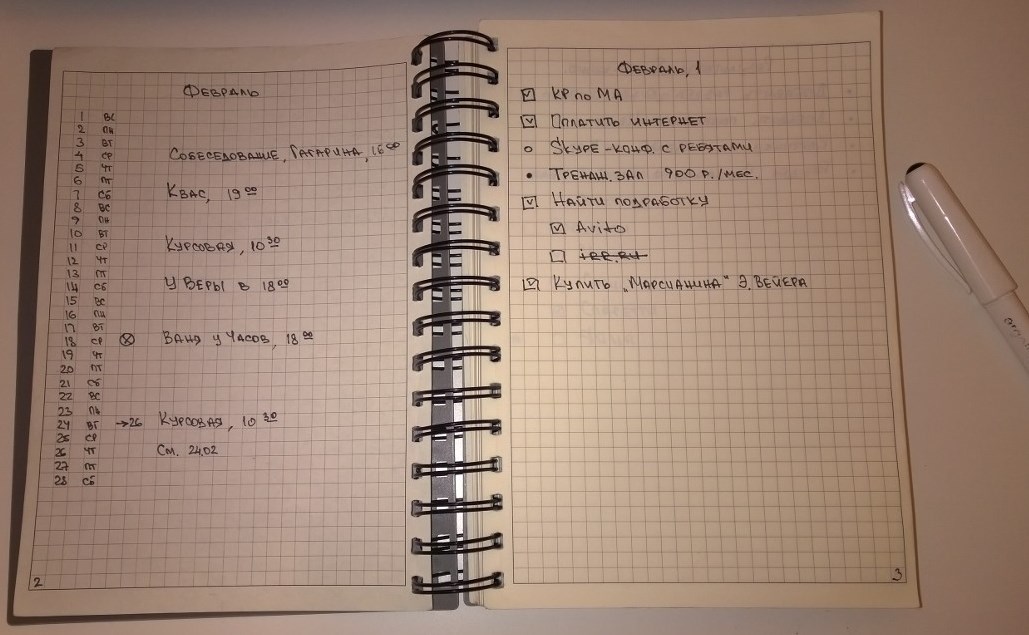 Февраль
1 вс
2 пн
3 вт
4 ср Собеседование, Гагарина, 16 00
5 чт
6 пт
7 сб Квас, 19 00
8 вс
9 пн
10 вт
11 ср Курсовая, 10 30
12 чт
13 пт
14 сб У Веры в 18 00
15 вс
16 пн
17 вт
18 ср ⊗ Ваня у Часов, 18 00
19 чт
20 пт
21 сб
22 вс
23 пн
24 вт →26 Курсовая, 10 30
25 ср
26 чт См. 24.02
27 пт
28 сб
2
Февраль, 1
☑ КР по МА
☑ Оплатить интернет
○ Skype-конф. с ребятами
• Тренаж. зал 900 р./мес.
☑ Найти подработку
☑ Avito
☐ irr.ru
☑ Купить "Марсианина" Э. Вейера
3